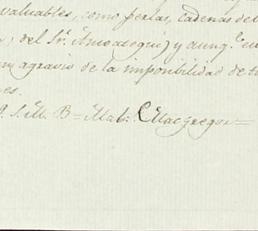 valuables, como perlas, cadenas de
del Sr. Amoategui) y aunq.e
agravio de la imposibilidad de
es.
S. M. B = Mac Gregor =